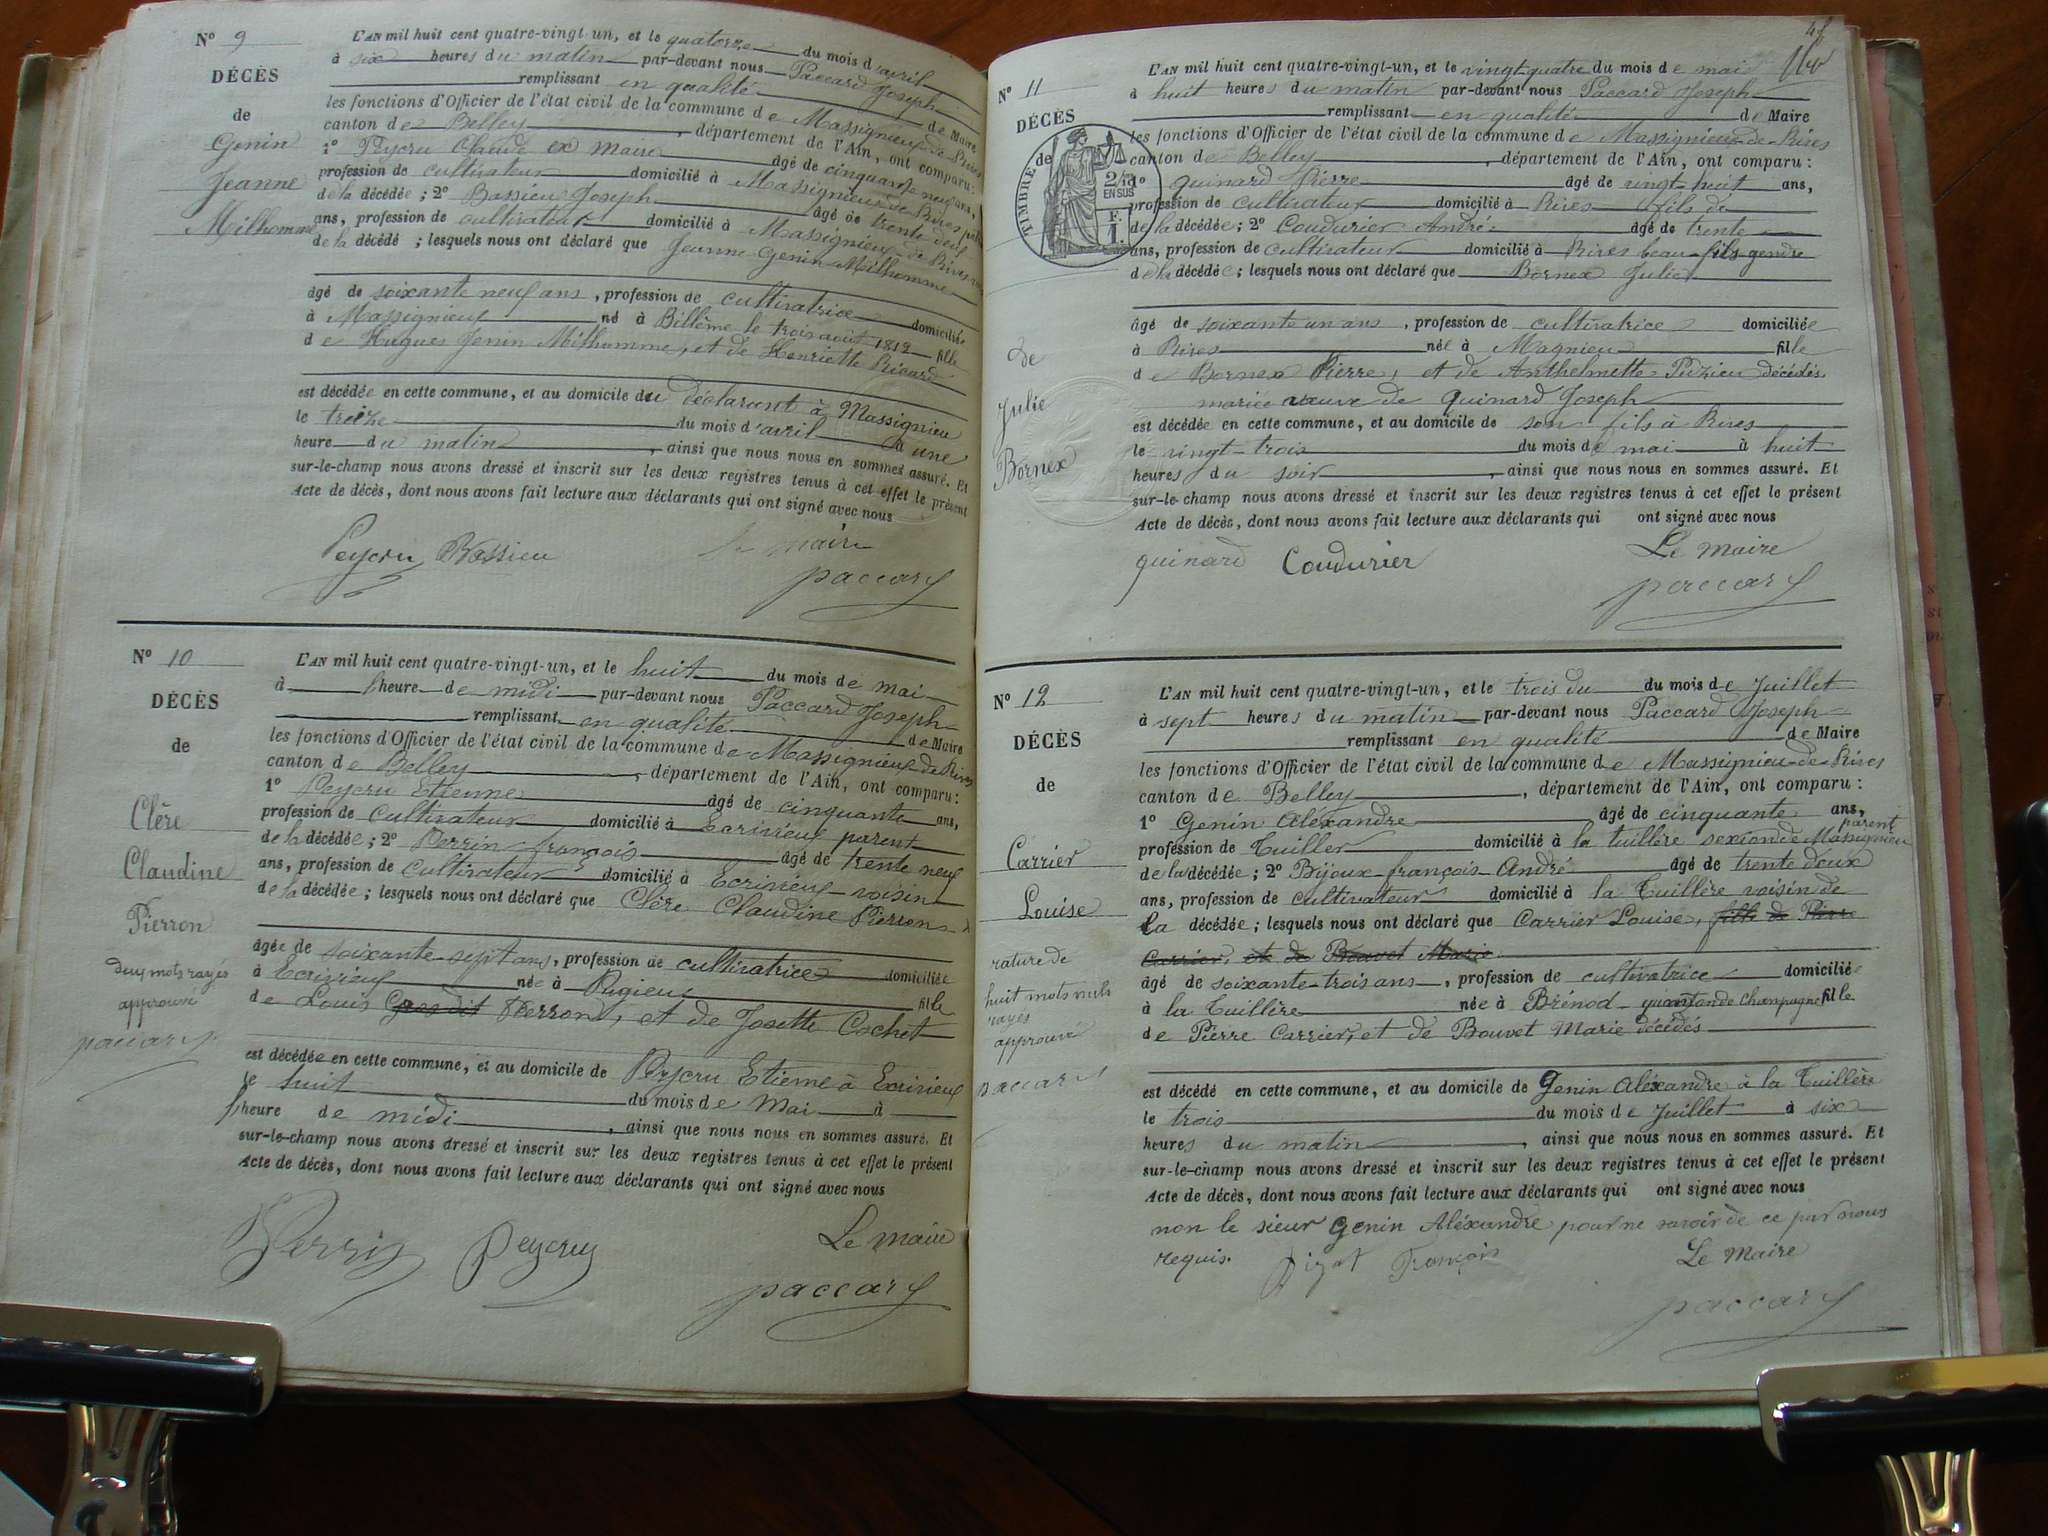 N° 9
DÉCÈS
de
Genin
Jeanne
Milhomme
L'AN mil huit cent quatre-vingt un, et le quatorze du mois d'avril
à six heures du matin par-devant nous Paccard Joseph
remplissant en qualité de Maire
les fonctions d'Officier de l'état civil de la commune de Massignieu de Rives
canton de Belley, département de l'Ain, ont comparu :
1° Peycru Claude ex maire âgé de cinquante neuf ans,
profession de cultivateur domicilié à Massignieu de Rives
de la décédée ; 2° Bassieu Joseph âgé de trente deux
ans, profession de cultivateur domicilié à Massignieu de Rives
de la décédé ; lesquels nous ont déclaré que Jeanne Genin Milhomme
âgé de soixante neuf ans, profession de cultivatrice domiciliée
à Massignieu né à Billème le trois août 1812 fille
de Hugues Jenin Milhomme, et de Henriette Ricard
est décédée en cette commune, et au domicile du déclarant à Massignieu
le treize du mois d'avril à une
heure du matin, ainsi que nous nous en sommes assuré. Et
sur-le-champ nous avons dressé et inscrit sur les deux registres tenus à cet effet le présent
Acte de décès, dont nous avons fait lecture aux déclarants qui ont signé avec nous
Peycru Bassieu
Le maire
paccard
N° 10
DÉCÈS
de
Clère
Claudine
Pierron
deux mots rayés
approuvé
paccard
L'AN mil huit cent quatre-vingt-un, et le huit du mois de mai
à l'heure de midi par-devant nous Paccard Joseph
remplissant en qualité de Maire
les fonctions d'Officier de l'état civil de la commune de Massignieu de Rives
canton de Belley, département de l'Ain, ont comparu :
1° Peycru Etienne âgé de cinquante ans,
profession de cultivateur domicilié à Ecrivieux parent
de la décédée ; 2° Perrin françois âgé de trente neuf
ans, profession de cultivateur domicilié à Ecrivieux voisin
de la décédée ; lesquels nous ont déclaré que Clère Claudine Pierron
âgée de soixante-sept ans, profession de cultivatrice domiciliée
à Ecrivieux née à Pugieux fille
de Louis Pierron, et de Josette Cochet
est décédée en cette commune, et au domicile de Peycru Etienne à Ecrivieux
le huit du mois de Mai à
l'heure de midi, ainsi que nous nous en sommes assuré. Et
sur-le-champ nous avons dressé et inscrit sur les deux registres tenus à cet effet le présent
Acte de décès, dont nous avons fait lecture aux déclarants qui ont signé avec nous
Perrin Peycru
Le maire
paccard
N° 11
DÉCÈS
de
TIMBRE
2/10
EN SUS
1 F.
de
Julie
Bornex
L'AN mil huit cent quatre-vingt-un, et le vingt-quatre du mois de mai
à huit heures du matin par-devant nous Paccard Joseph
remplissant en qualité de Maire
les fonctions d'Officier de l'état civil de la commune de Massignieu-de-Rives
canton de Belley, département de l'Ain, ont comparu :
1° quinard Pierre âgé de vingt-huit ans,
profession de cultivateur domicilié à Rives fils de
de la décédée ; 2° Coudurier André âgé de trente
ans, profession de cultivateur domicilié à Rives beau-fils gendre
de la décédée ; lesquels nous ont déclaré que Bornex Julie
âgé de soixante un ans, profession de cultivatrice domiciliée
à Rives née à Magnieu fille
de Bornex Pierre, et de Anthelmette Puzieu décédés
mariée veuve de quinard Joseph
est décédée en cette commune, et au domicile de son fils à Rives
le vingt-trois du mois de mai à huit
heures du soir, ainsi que nous nous en sommes assuré. Et
sur-le-champ nous avons dressé et inscrit sur les deux registres tenus à cet effet le présent
Acte de décès, dont nous avons fait lecture aux déclarants qui ont signé avec nous
quinard Coudurier
Le Maire
paccard
N° 12
DÉCÈS
de
Carrier
Louise
rature de
huit mots nuls
rayés
approuvé
paccard
L'AN mil huit cent quatre-vingt-un, et le trois du du mois de Juillet
à sept heures du matin par-devant nous Paccard Joseph
remplissant en qualité de Maire
les fonctions d'Officier de l'état civil de la commune de Massignieu-de-Rives
canton de Belley, département de l'Ain, ont comparu :
1° Genin Aléxandre âgé de cinquante ans,
profession de Tuiller domicilié à la tuillère sexion de Massignieu parent
de la décédée ; 2° Bijoux françois André âgé de trente deux
ans, profession de cultivateur domicilié à la Tuillère voisin de
La décédée ; lesquels nous ont déclaré que Carrier Louise, fille de Pierre
Carrier, et de Bouvet Marie
âgé de soixante-trois ans, profession de cultivatrice domiciliée
à la Tuillère née à Brénod canton de Champagne fille
de Pierre Carrier, et de Bouvet Marie décédés
est décédé en cette commune, et au domicile de Genin Aléxandre à la Tuillère
le trois du mois de Juillet à six
heures du matin, ainsi que nous nous en sommes assuré. Et
sur-le-champ nous avons dressé et inscrit sur les deux registres tenus à cet effet le présent
Acte de décès, dont nous avons fait lecture aux déclarants qui ont signé avec nous
non le sieur Genin Aléxandre pour ne savoir de ce par nous
requis. François
Le Maire
paccard